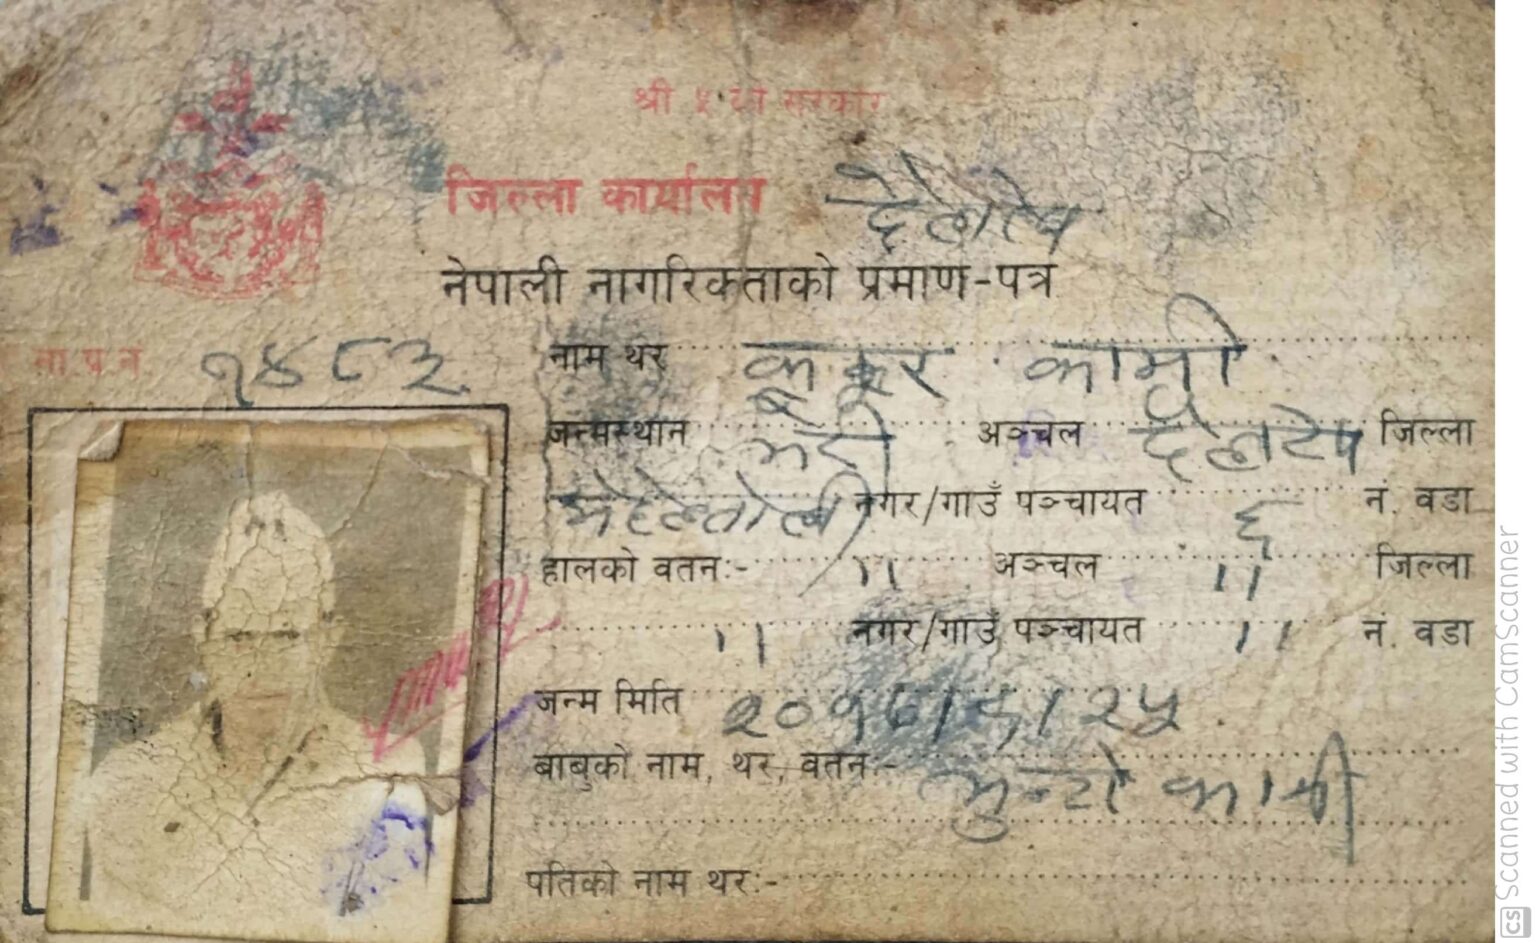 श्री ५ को सरकार
जिल्ला कार्यालय दैलेख
नेपाली नागरिकताको प्रमाण-पत्र
ना.प.न.
नाम थर कुकुर कामी
जन्मस्थान भेरी अञ्चल दैलेख जिल्ला
नगर/गाउँ पञ्चायत ६ नं. वडा
हालको वतन:- ।। अञ्चल ।। जिल्ला
।। नगर/गाउँ पञ्चायत ।। नं. वडा
जन्म मिति
बाबुको नाम, थर, वतन:- कामी
पतिको नाम थर:-
CS Scanned with CamScanner